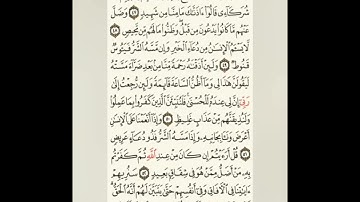 شُرَكَآءِى قَالُوٓا۟ ءَاذَنَّـٰكَ مَا مِنَّا مِن شَهِيدٍ ٤٧ وَضَلَّ
عَنْهُم مَّا كَانُوا۟ يَدْعُونَ مِن قَبْلُ ۖ وَظَنُّوا۟ مَا لَهُم مِّن مَّحِيصٍ ٤٨
لَّا يَسْـَٔمُ ٱلْإِنسَـٰنُ مِن دُعَآءِ ٱلْخَيْرِ وَإِن مَّسَّهُ ٱلشَّرُّ فَيَـُٔوسٌ
قَنُوطٌ ٤٩ وَلَئِنْ أَذَقْنَـٰهُ رَحْمَةً مِّنَّا مِنۢ بَعْدِ ضَرَّآءَ مَسَّتْهُ
لَيَقُولَنَّ هَـٰذَا لِى وَمَآ أَظُنُّ ٱلسَّاعَةَ قَآئِمَةً وَلَئِن رُّجِعْتُ إِلَىٰ
رَبِّىٓ إِنَّ لِى عِندَهُۥ لَلْحُسْنَىٰ ۚ فَلَنُنَبِّئَنَّ ٱلَّذِينَ كَفَرُوا۟ بِمَا عَمِلُوا۟
وَلَنُذِيقَنَّهُم مِّنْ عَذَابٍ غَلِيظٍ ٥٠ وَإِذَآ أَنْعَمْنَا عَلَى ٱلْإِنسَـٰنِ
أَعْرَضَ وَنَـَٔا بِجَانِبِهِۦ وَإِذَا مَسَّهُ ٱلشَّرُّ فَذُو دُعَآءٍ عَرِيضٍ
٥١ قُلْ أَرَءَيْتُمْ إِن كَانَ مِنْ عِندِ ٱللَّهِ ثُمَّ كَفَرْتُم
بِهِۦ مَنْ أَضَلُّ مِمَّنْ هُوَ فِى شِقَاقٍۭ بَعِيدٍ ٥٢ سَنُرِيهِمْ
ءَايَـٰتِنَا فِى ٱلْـَٔافَاقِ وَفِىٓ أَنفُسِهِمْ حَتَّىٰ يَتَبَيَّنَ لَهُمْ أَنَّهُ ٱلْحَقُّ ۗ